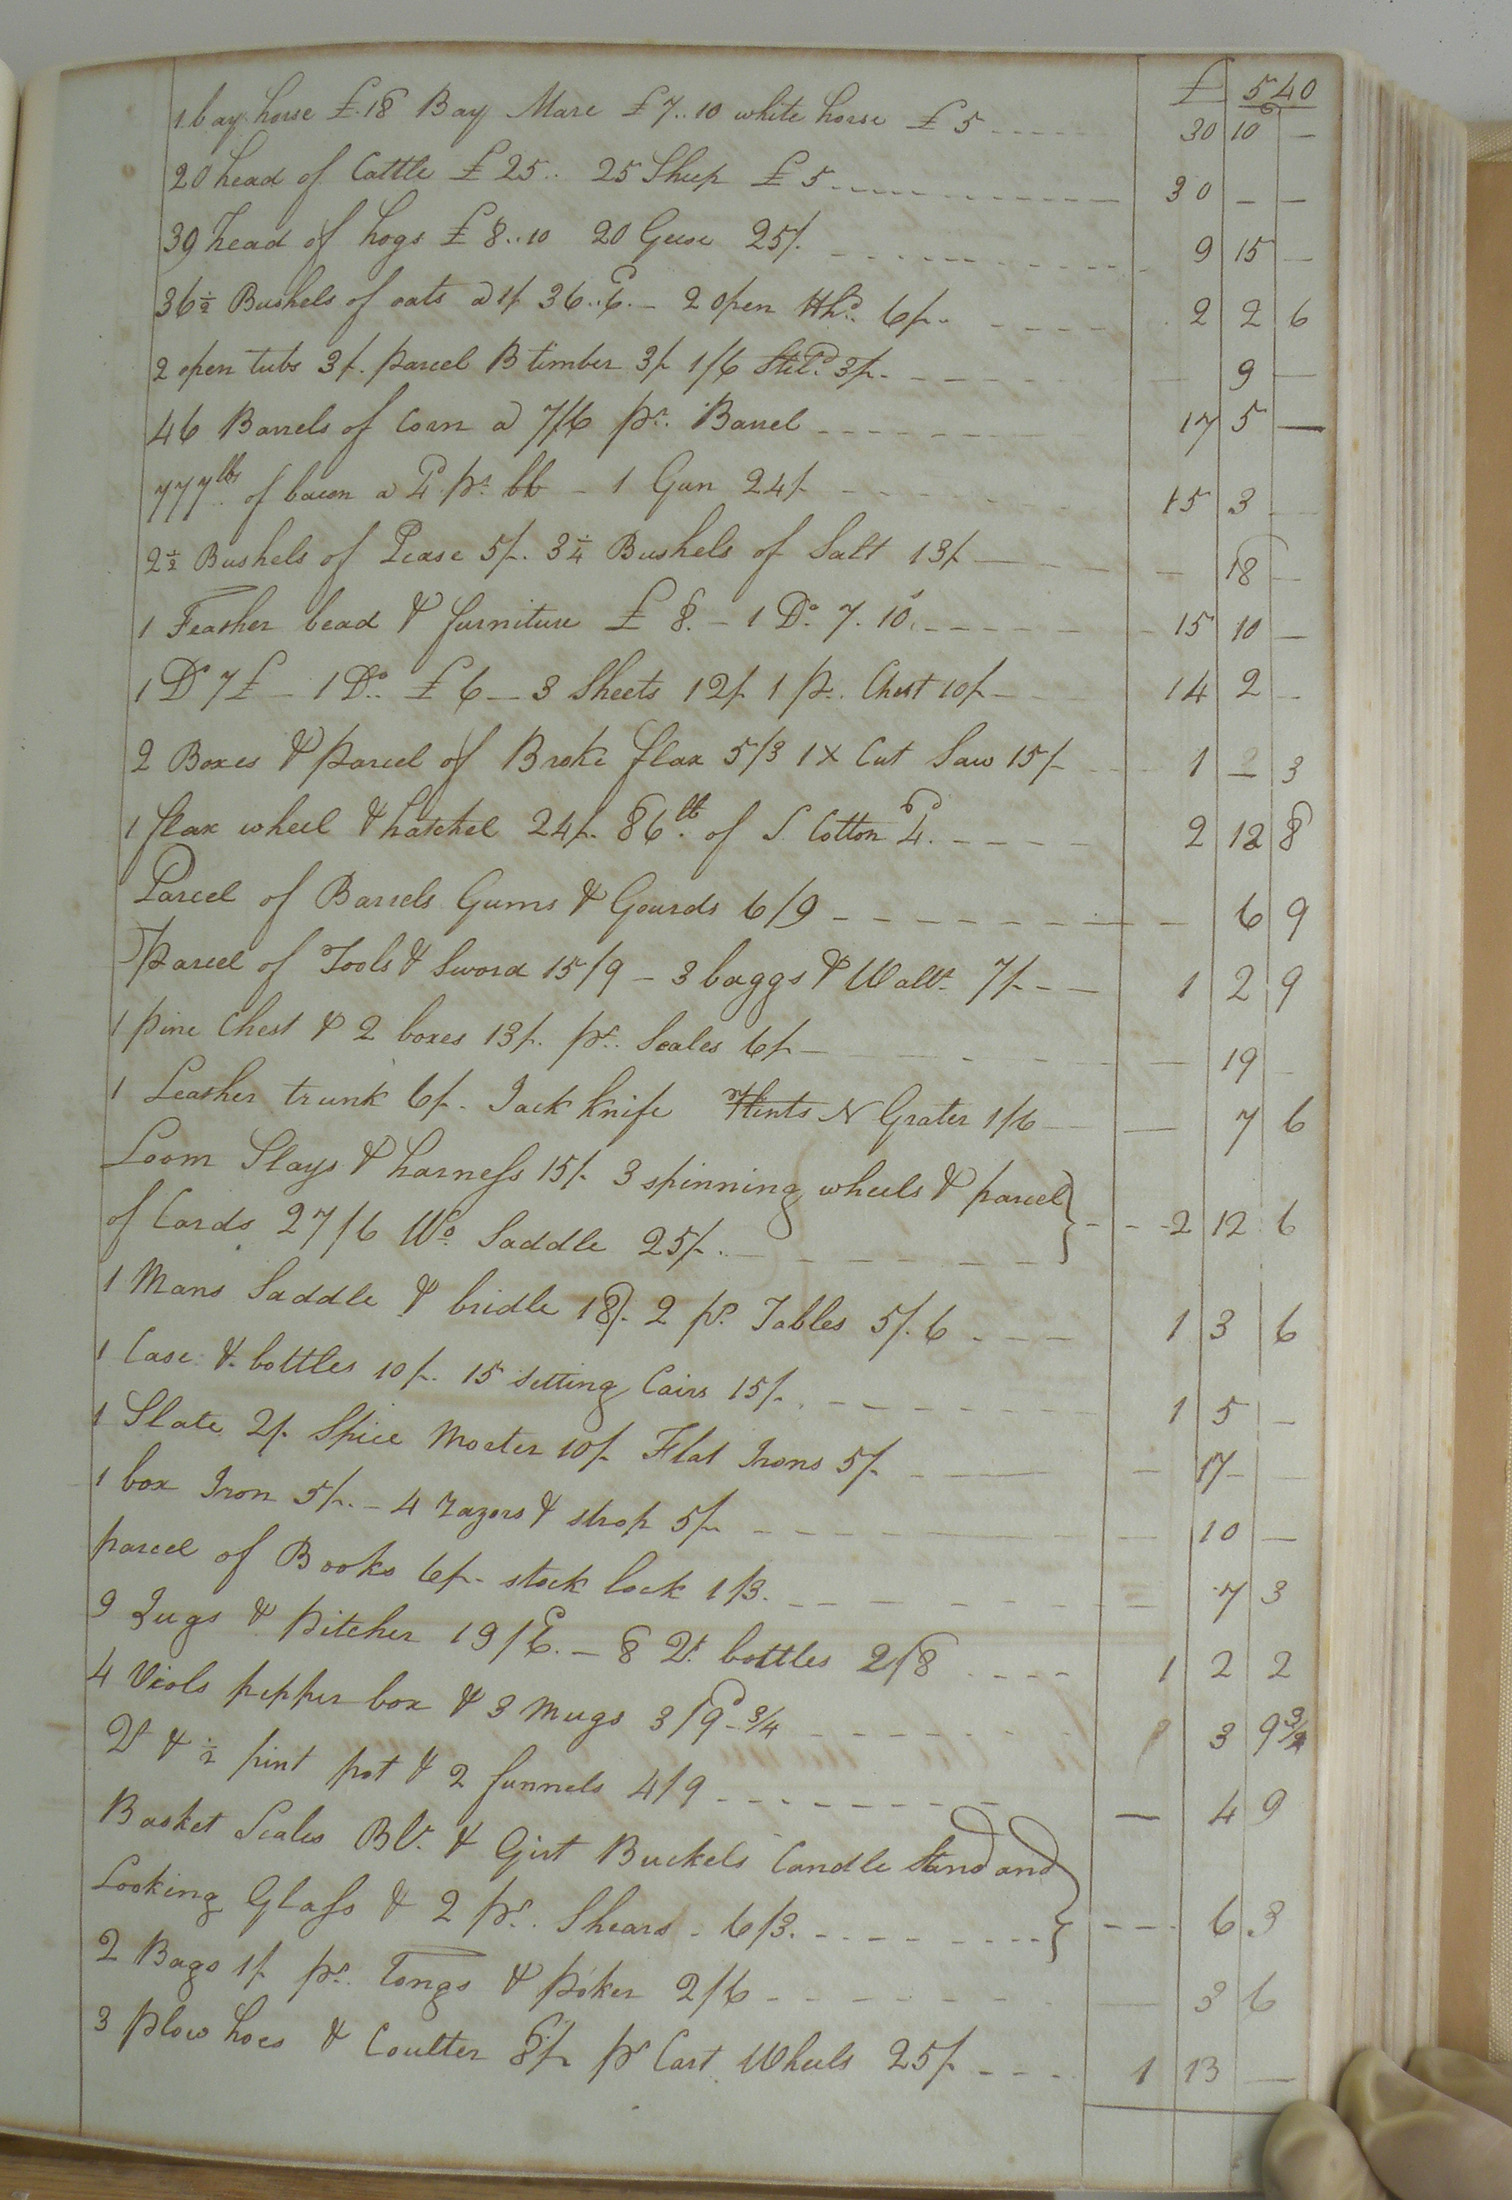 £ 540
1 bay horse £.18 Bay Mare £7..10 white horse £5 ---- 30 10 —
20 head of Cattle £25.. 25 Sheep £5 ---- 30 — —
39 head of hogs £8..10 20 Geese 25/. ---- 9 15 —
36½ Bushels of oats a 1/ 36..6. — 2 open Hhds. 6/- ---- 2 2 6
2 open tubs 3/. parcel B timber 3/ 1/6 3/- ---- 9 —
46 Barrels of Corn a 7/6 pr. Barrel ---- 17 5 —
777 lbs of bacon a 4d pr. lb — 1 Gun 24/ ---- 15 3 —
2½ Bushels of Pease 5/. 3¼ Bushels of Salt 13/ ---- — 18 —
1 Feather bead & furniture £8. — 1 Do. 7.10. ---- 15 10 —
1 Do 7£ — 1 Do. £6 — 3 Sheets 12/ 1 p. Chest 10/ — 14 2 —
2 Boxes & parcel of Broke flax 5/3 1 X Cut Saw 15/ — 1 — 3
1 flax wheel & hatchel 24/. 86 lb. of S. Cotton 4d. ---- 2 12 8
Parcel of Barrels Gums & Gourds 6/9 ---- — 6 9
Parcel of Tools & Sword 15/9 — 3 baggs & Wallt. 7/ --- 1 2 9
1 pine Chest & 2 boxes 13/. pr. Scales 6/ ---- — 19 —
1 Leather trunk 6/. Jack knife N Grater 1/6 — — 7 6
Loom Slays & harness 15/. 3 spinning wheels & parcel
of Cards 27/6 Wo. Saddle 25/. ---- 2 12 6
1 Mans Saddle & bridle 18/. 2 pr. Tables 5/.6 ---- 1 3 6
1 Case & bottles 10/. 15 setting Cairs 15/. ---- 1 5 —
1 Slate 2/. Spice Morter 10/ Flat Irons 5/ ---- — 17 —
1 box Iron 5/. — 4 razors & strop 5/ ---- — 10 —
parcel of Books 6/- stock lock 1/3. ---- — 7 3
9 Jugs & pitcher 19/6. — 8 Qt. bottles 2/8 ---- 1 2 2
4 Viols pepper box & 3 Mugs 3/9 ¾ ---- 3 9¾
Qt & ½ pint pot & 2 funnels 4/9 ---- — 4 9
Basket Scales Bl. & Girt Buckels Candle Stand and
Looking Glass & 2 pr. Shears - 6/3. ---- 6 3
2 Bags 1/. pr. Tongs & poker 2/6 ---- — 3 6
3 plow hoes & Coulter 8/. pr Cart Wheels 25/ ---- 1 13 —